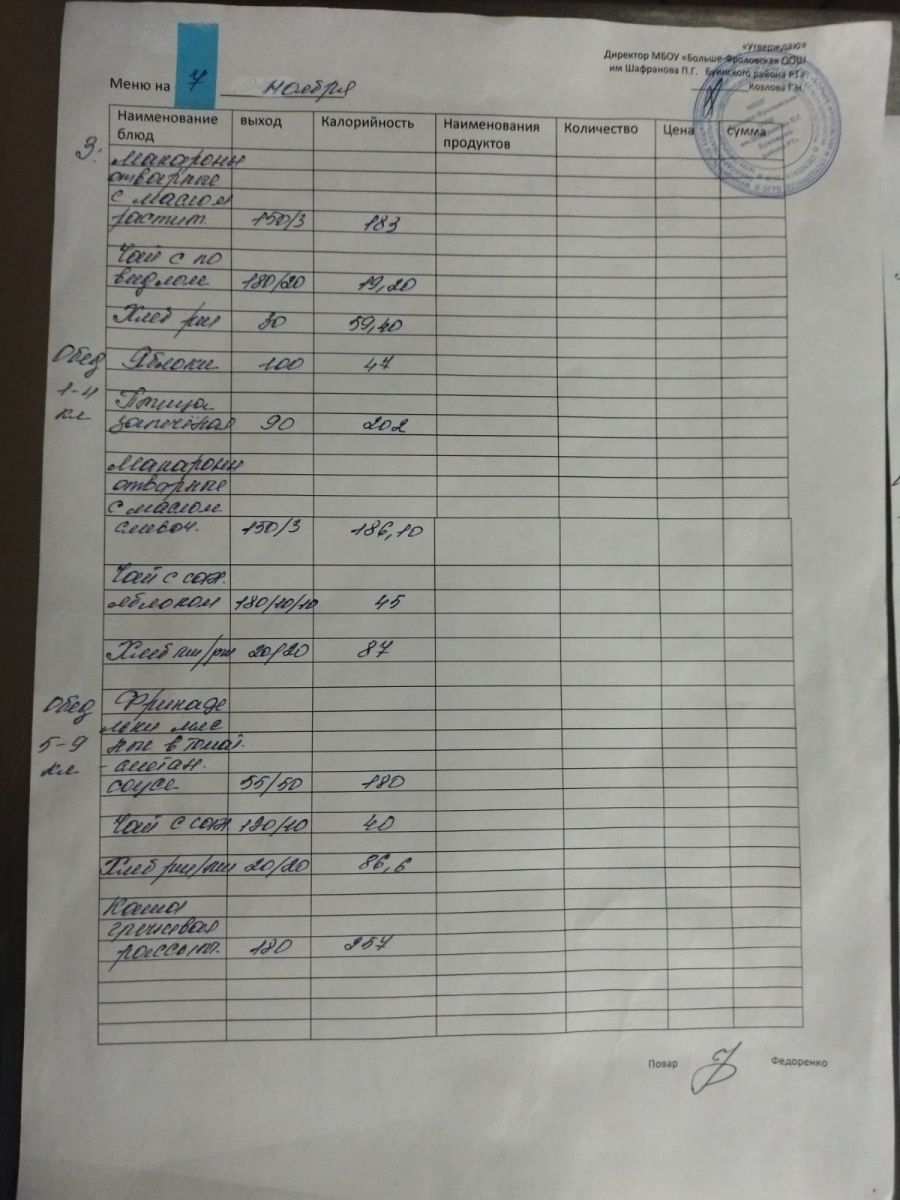 «Утверждаю»
Директор МБОУ «Больше-Фроловская ООШ
им Шафранова П.Г. Буинского района РТ»
Козлова Г.Н.
Меню на 7 ноября
Наименование блюд выход Калорийность Наименования продуктов Количество Цена сумма
З:
Макароны
отварные
с маслом
растит. 150/3 183
Чай с по
видлом 180/20 19,20
Хлеб рж 30 59,40
Обед Яблоки 100 47
1-4
кл
Птица
запечёная 90 202
Макароны
отварные
с маслом
сливоч. 150/3 186,10
Чай с сах.
яблоком 180/10/10 45
Хлеб пш/рж 20/20 87
Обед Фрикаде
льки мяс
5-9 ные в томат.
кл - сметан.
соусе 55/50 180
Чай с сах 180/10 40
Хлеб рж/пш 20/20 86,6
Каша
гречневая
рассыпт. 180 257
Повар Федоренко